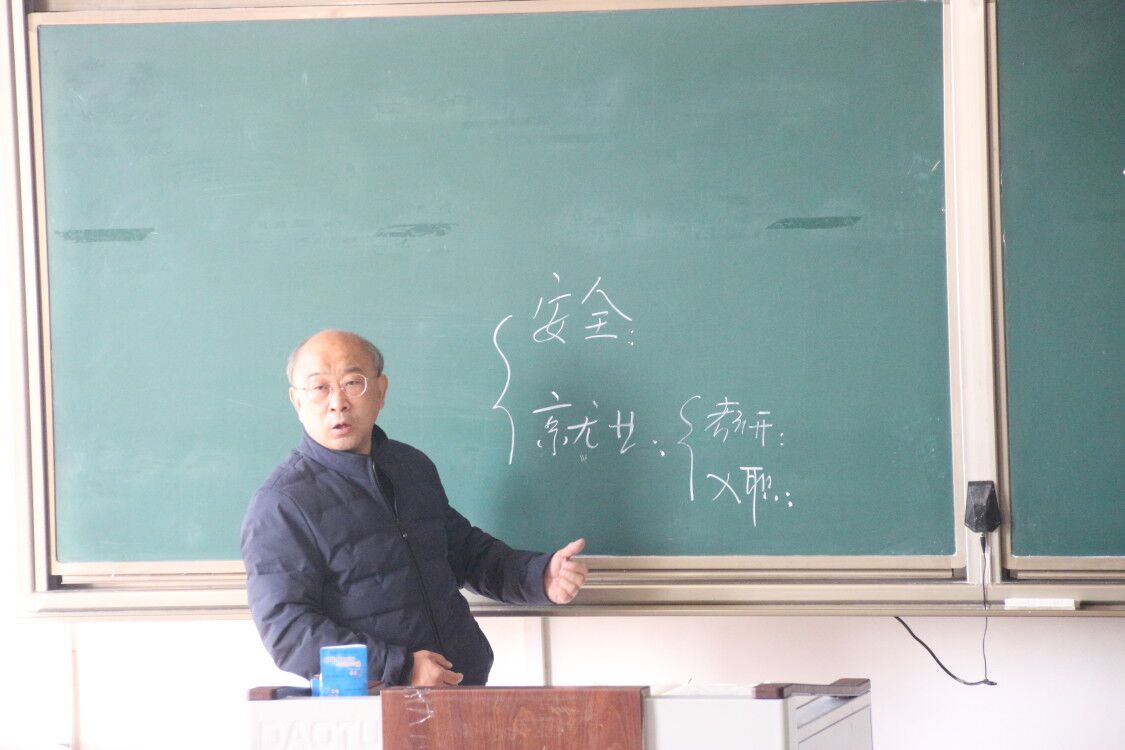 安全:
就业: 考研:
入职:
DAOTU